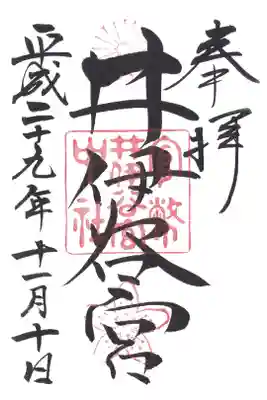 奉拝
井伊谷宮
官幣中社
井伊谷宮
平成二十九年十一月十日